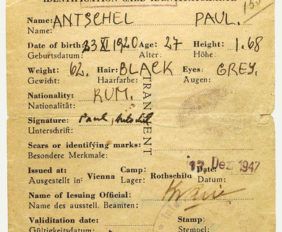 IDENTIFICATION CARD IDENTITÄTSKARTE
Name: ANTSCHEL PAUL.
Name:
Date of birth: 23 XI 1920 Age: 27 Height: 1.68
Geburtsdatum: Alter: Höhe:
Weight: 62. Hair: BLACK Eyes: GREY.
Gewicht: Haarfarbe: Augen:
Nationality: RUM.
Nationalität:
TRANSIENT
Signature: Paul
Unterschrift:
Scars or identifying marks:
Besondere Merkmale:
Issued at: Camp: Date:
Ausgestellt in: Vienna Lager: Rothschild Datum: 17. Dez. 1947
Name of Issuing Official:
Name des ausstell. Beamten:
Validitation date: Stamp:
Gültigkeitsdatum Stempel: